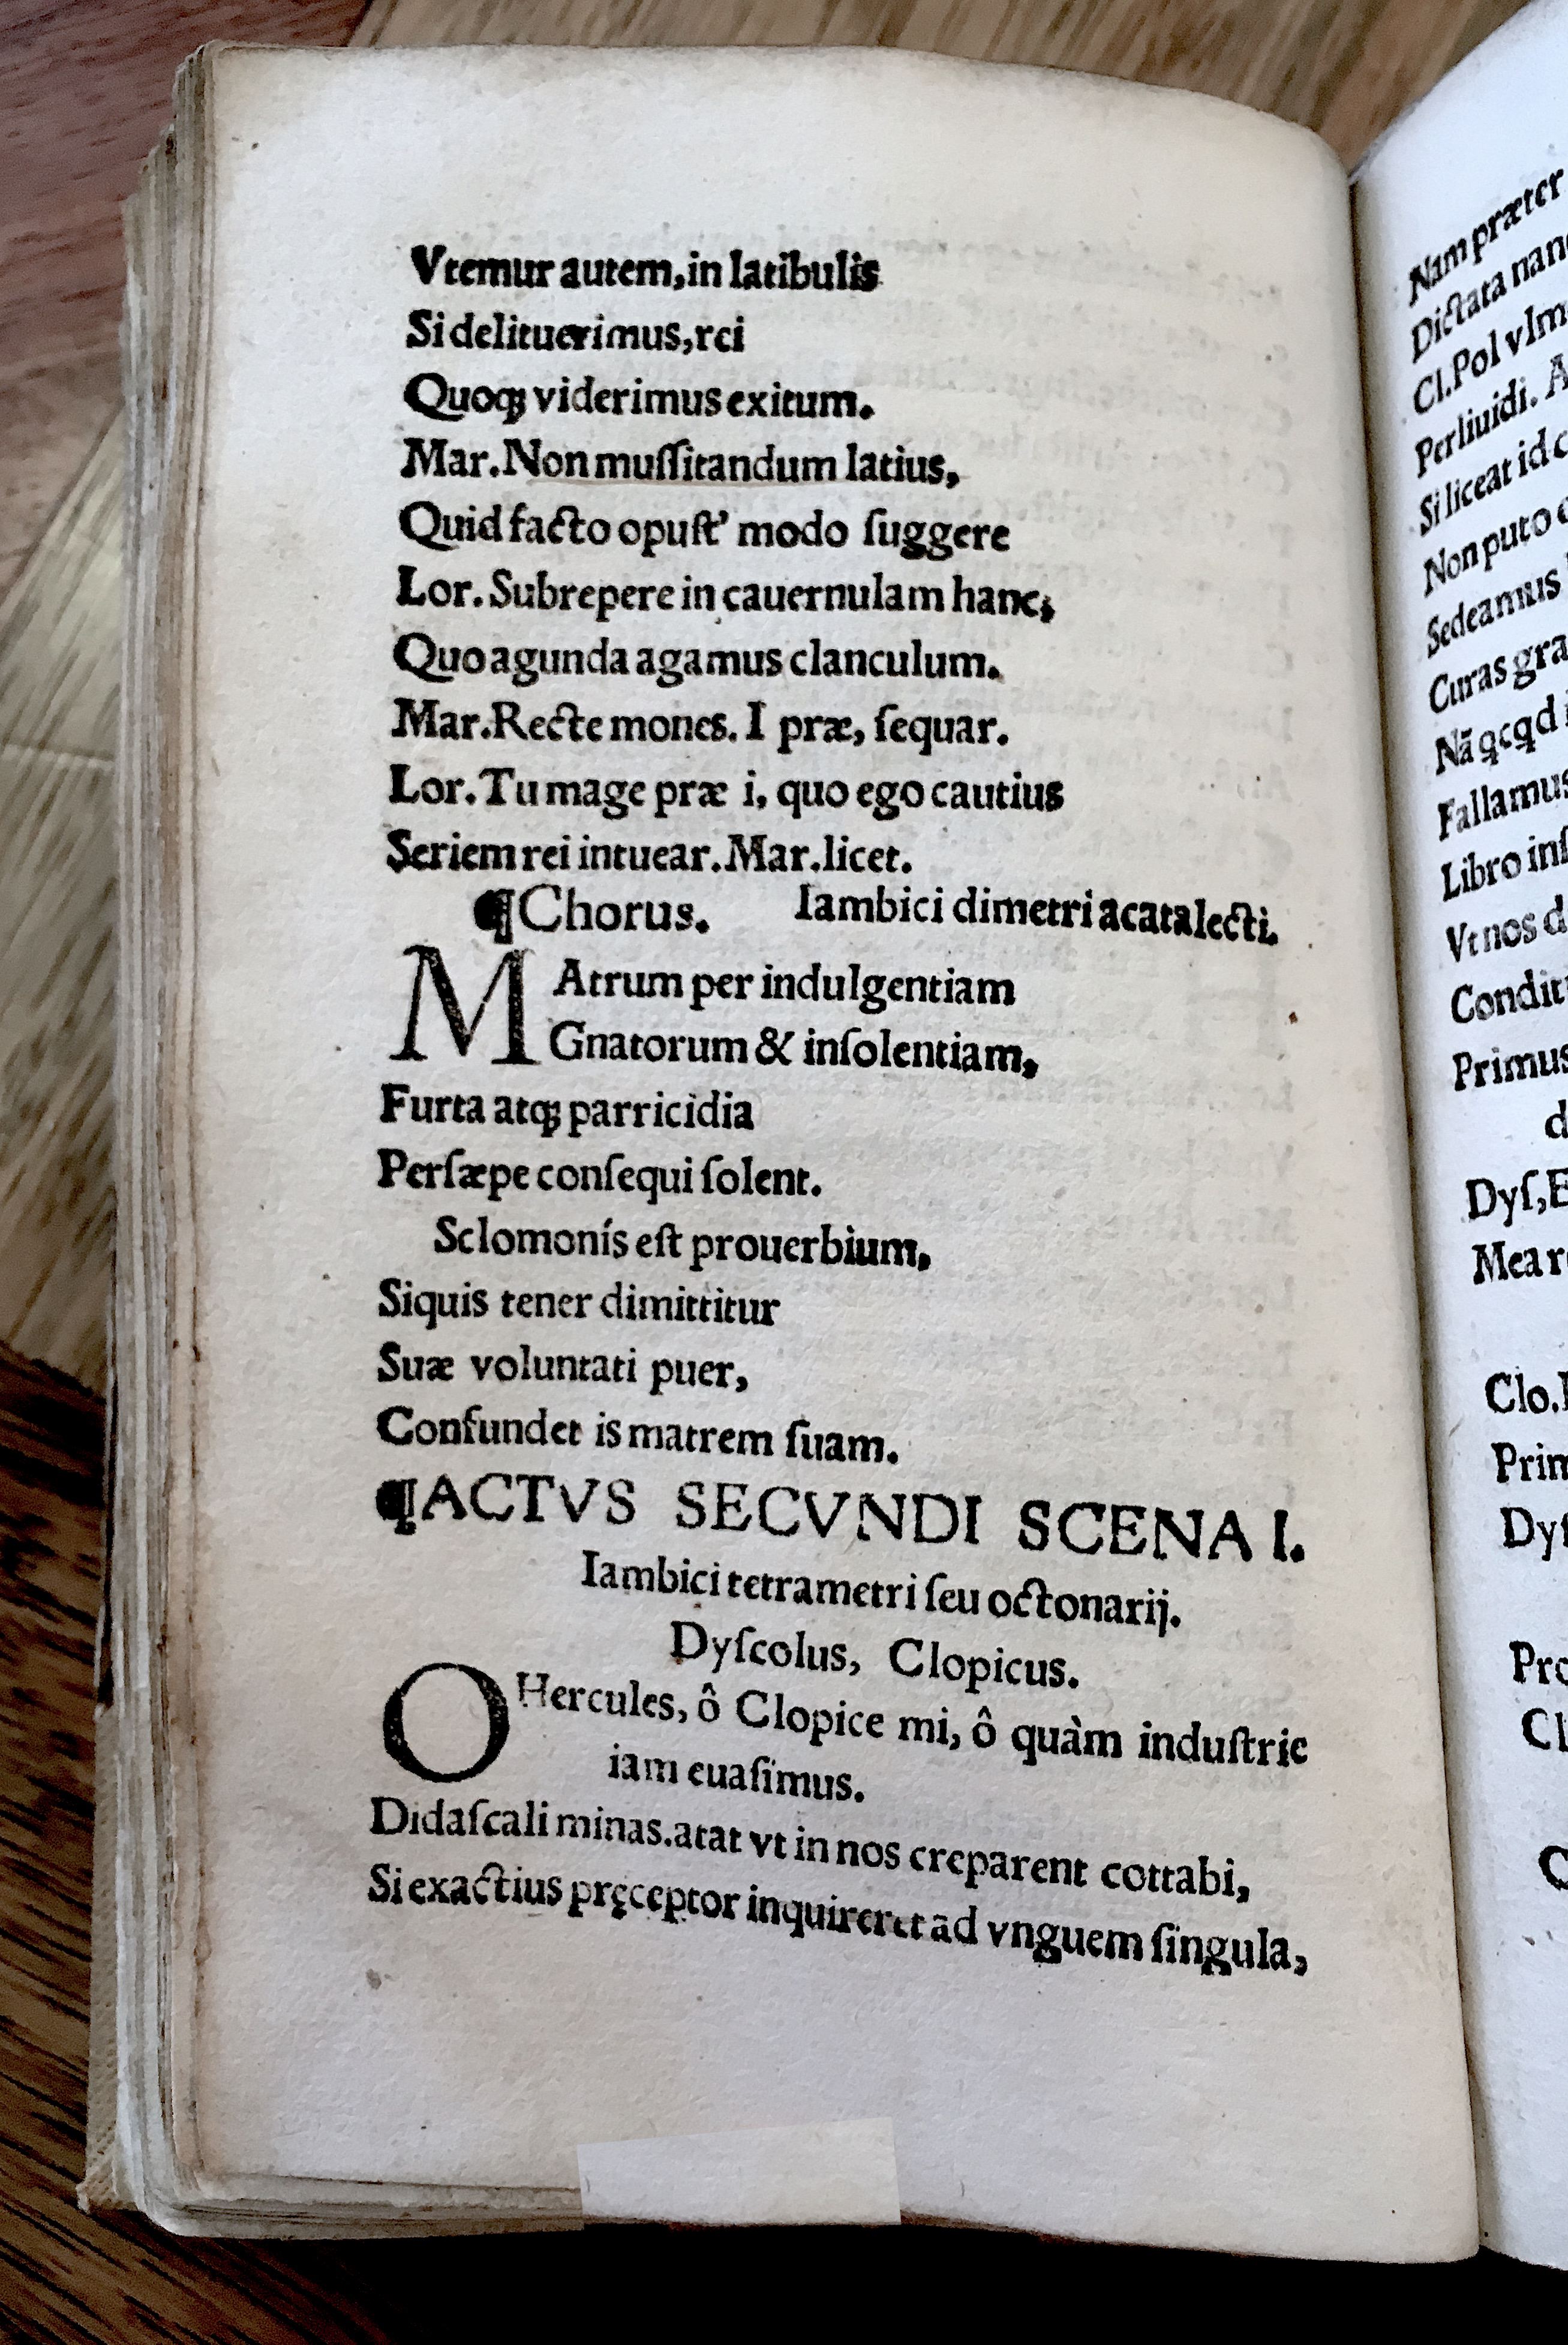 Vtemur autem, in latibulis
Si delituerimus, rei
Quoqꝫ viderimus exitum.
Mar. Non muſſitandum latius,
Quid facto opuſt' modo ſuggere
Lor. Subrepere in cauernulam hanc,
Quo agunda agamus clanculum.
Mar. Recte mones. I præ, ſequar.
Lor. Tu mage præ i, quo ego cautius
Seriem rei intuear. Mar. licet.
¶Chorus. Iambici dimetri acatalecti.
MAtrum per indulgentiam
Gnatorum & inſolentiam,
Furta atqꝫ parricidia
Perſæpe conſequi ſolent.
Sclomonís eſt prouerbium,
Siquis tener dimittitur
Suæ voluntati puer,
Confundet is matrem ſuam.
¶ACTVS SECVNDI SCENA I.
Iambici tetrametri ſeu octonarij.
Dyſcolus, Clopicus.
O Hercules, ô Clopice mi, ô quàm induſtrie
iam euaſimus.
Didaſcali minas. atat vt in nos creparent cottabi,
Si exactius pręceptor inquireret ad vnguem ſingula,
Nam præter
Dictata
Cl. Pol
Perliuidi.
Si liceat id
Non puto
Sedeamus
Curas
Nā qcqd
Fallamus
Libro
Vt nos
Primus
Dyſ,
Mea
Clo.